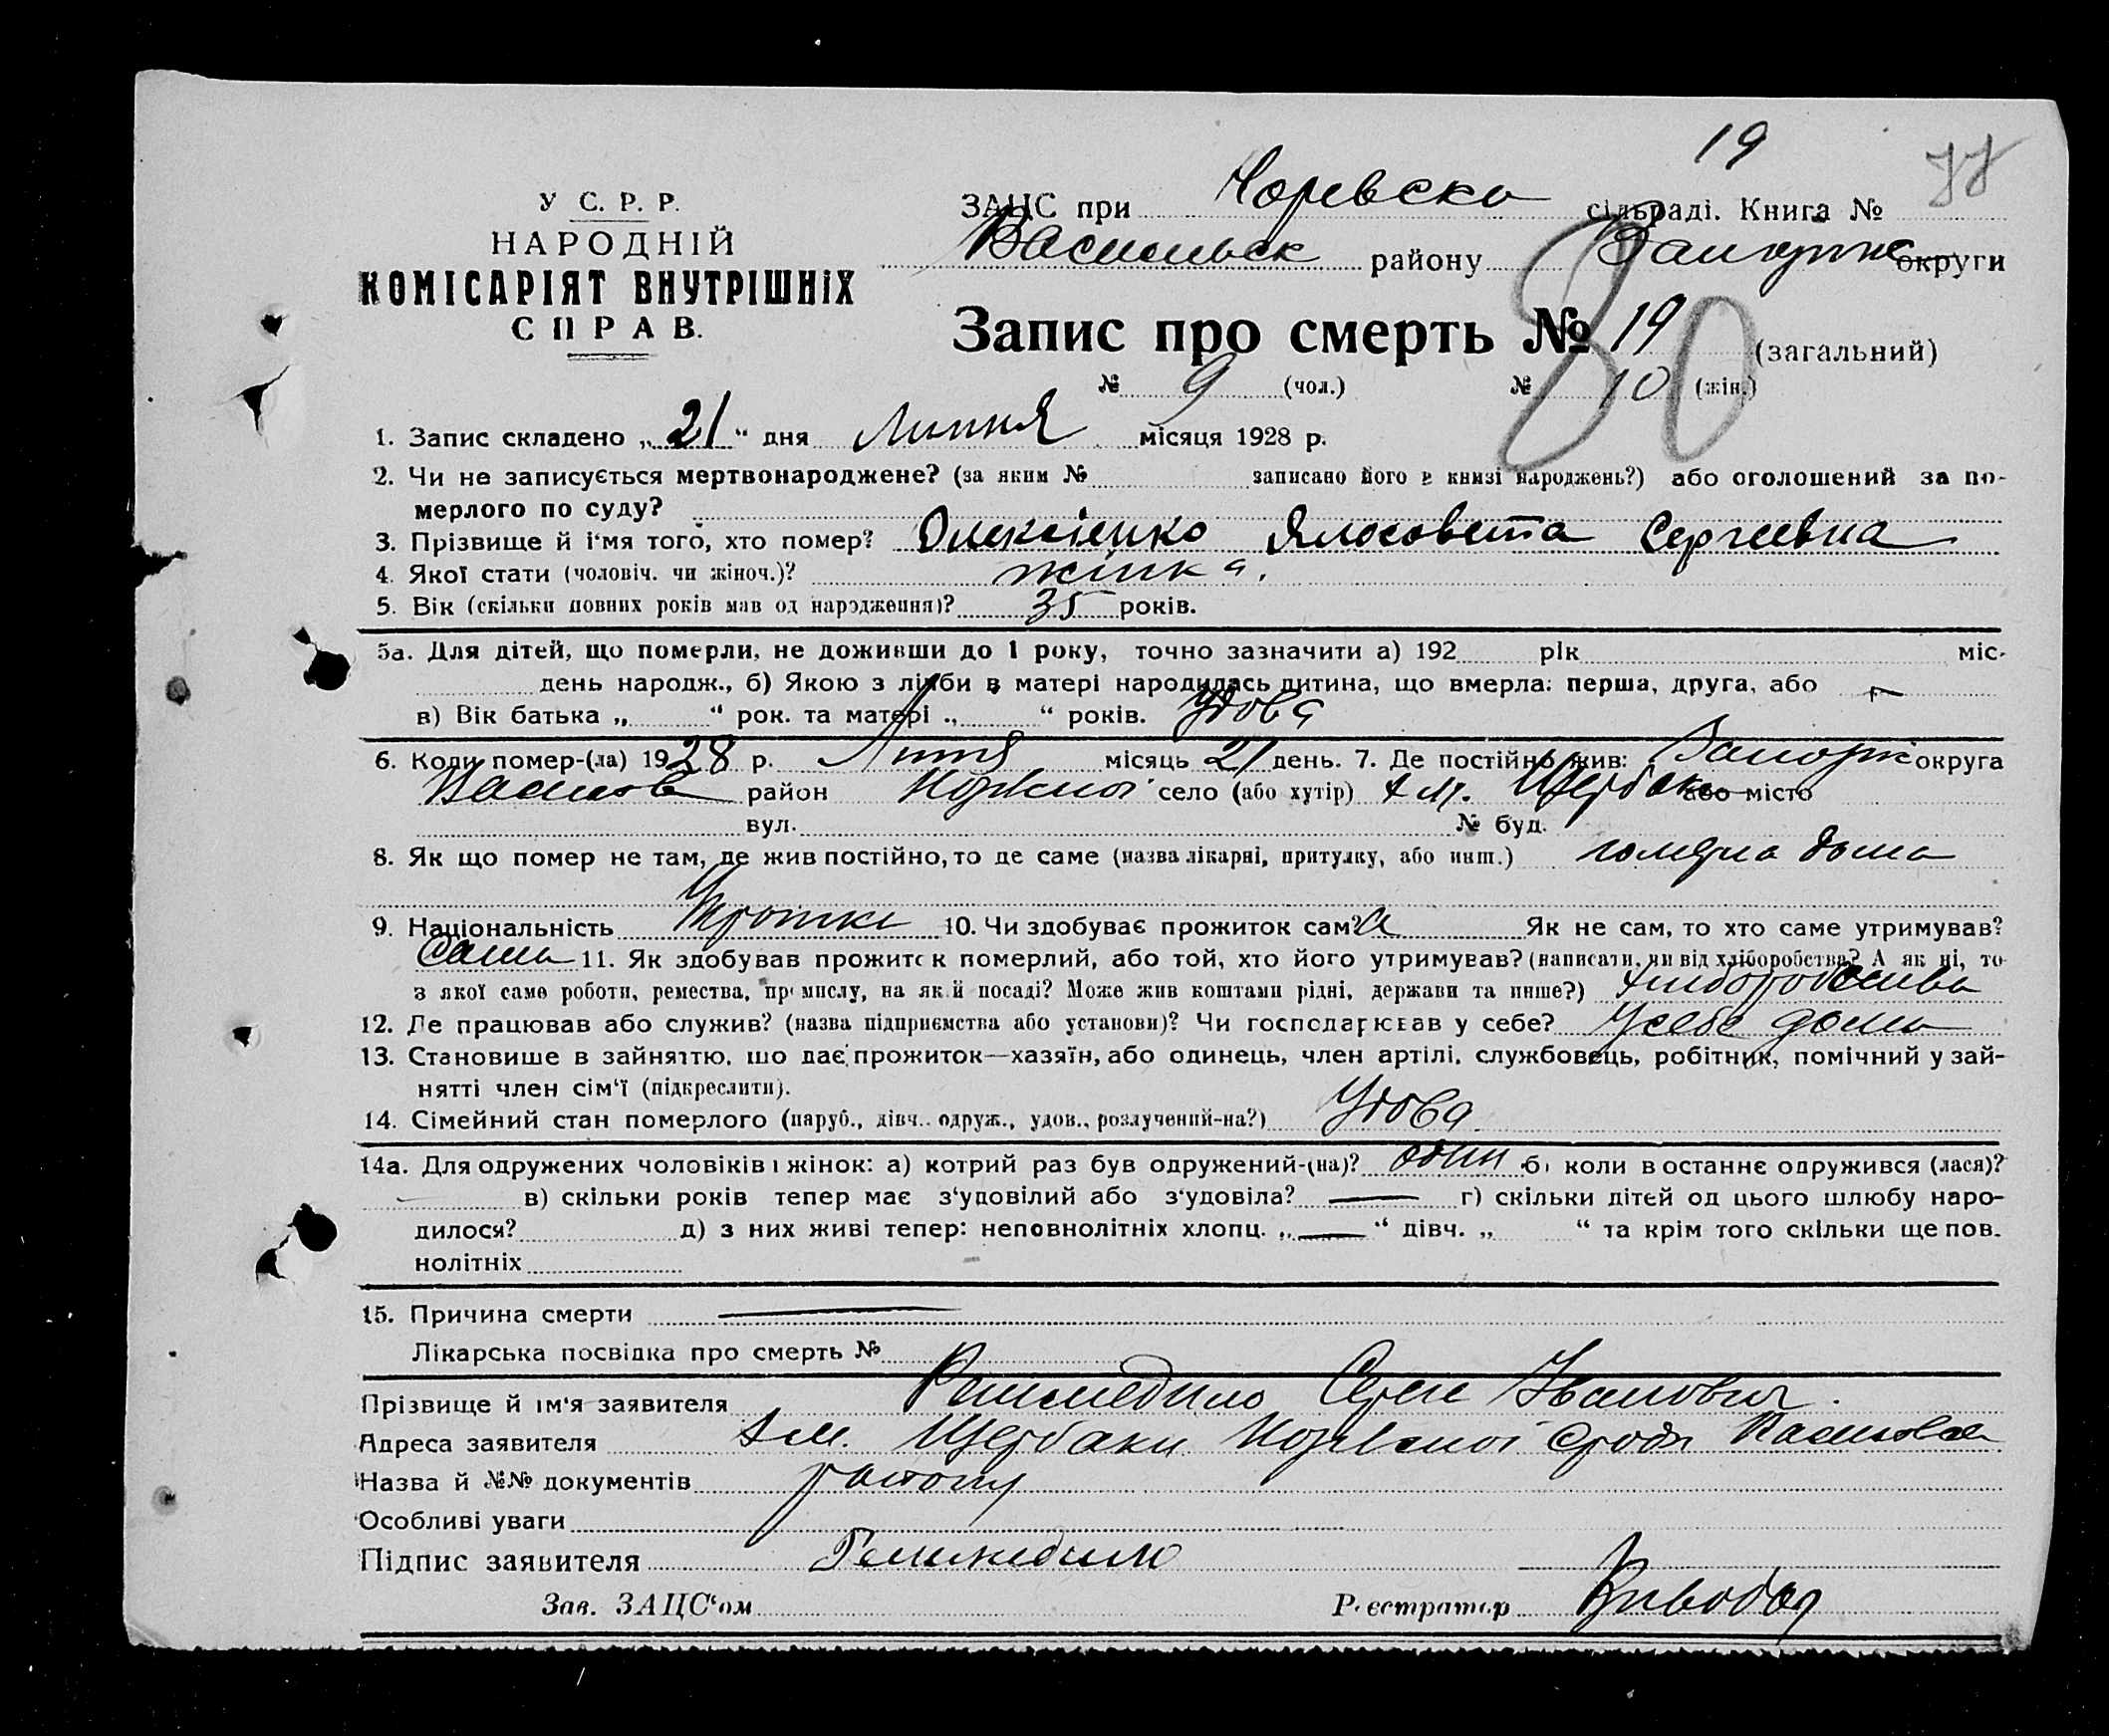 19
У С. Р. Р.
НАРОДНІЙ
КОМІСАРІЯТ ВНУТРІШНІХ
СПРАВ.
ЗАЦС при сільраді. Книга №
району округи
80
Запис про смерть № 19 (загальний)
№ 9 (чол.) № 10 (жін.)
1. Запис складено „21“ дня Липня місяця 1928 р.
2. Чи не записується мертвонароджене? (за яким № записано його в книзі народжень?) або оголошений за по-
мерлого по суду?
3. Прізвище й і'мя того, хто помер? Олексіенко Ялосовета Сергеевна
4. Якої стати (чоловіч. чи жіноч.)? жінка.
5. Вік (скільки повних років мав од народження)? 35 років.
5а. Для дітей, що померли, не доживши до 1 року, точно зазначити а) 192 рік міс.
день народж., б) Якою з лічби в матері народилась дитина, що вмерла: перша, друга, або
в) Вік батька „ “ рок. та матері „ “ років. Удова
6. Коли помер-(ла) 1928 р. Липня місяць 21 день. 7. Де постійно жив: Запоріж округа
район село (або хутір) Щербаки або місто
вул. № буд.
8. Як що помер не там, де жив постійно, то де саме (назва лікарні, притулку, або инш.) дома
9. Національність 10. Чи здобуває прожиток сам? а Як не сам, то хто саме утримував?
Сама 11. Як здобував прожиток померлий, або той, хто його утримував? (написати, чи від хліборобства? А як ні, то
з якої саме роботи, ремества, промислу, на якій посаді? Може жив коштами рідні, держави та инше?)
12. Де працював або служив? (назва підприємства або установи)? Чи господарював у себе? У себе дома
13. Становище в зайняттю, що дає прожиток—хазяїн, або одинець, член артілі, службовець, робітник, помічний у зай-
нятті член сім'ї (підкреслити).
14. Сімейний стан померлого (паруб., дівч., одруж., удов., розлучений-на?) Удова
14а. Для одружених чоловіків і жінок: а) котрий раз був одружений-(на)? один б) коли в останнє одружився (лася)?
в) скільки років тепер має з'удовілий або з'удовіла? — г) скільки дітей од цього шлюбу наро-
дилося? д) з них живі тепер: неповнолітніх хлопц. „—“ дівч. „ “ та крім того скільки ще пов.
нолітніх
15. Причина смерти —
Лікарська посвідка про смерть №
Прізвище й ім'я заявителя Іванович.
Адреса заявителя Щербаки
Назва й №№ документів
Особливі уваги
Підпис заявителя
Зав. ЗАЦС'ом Реєстратор